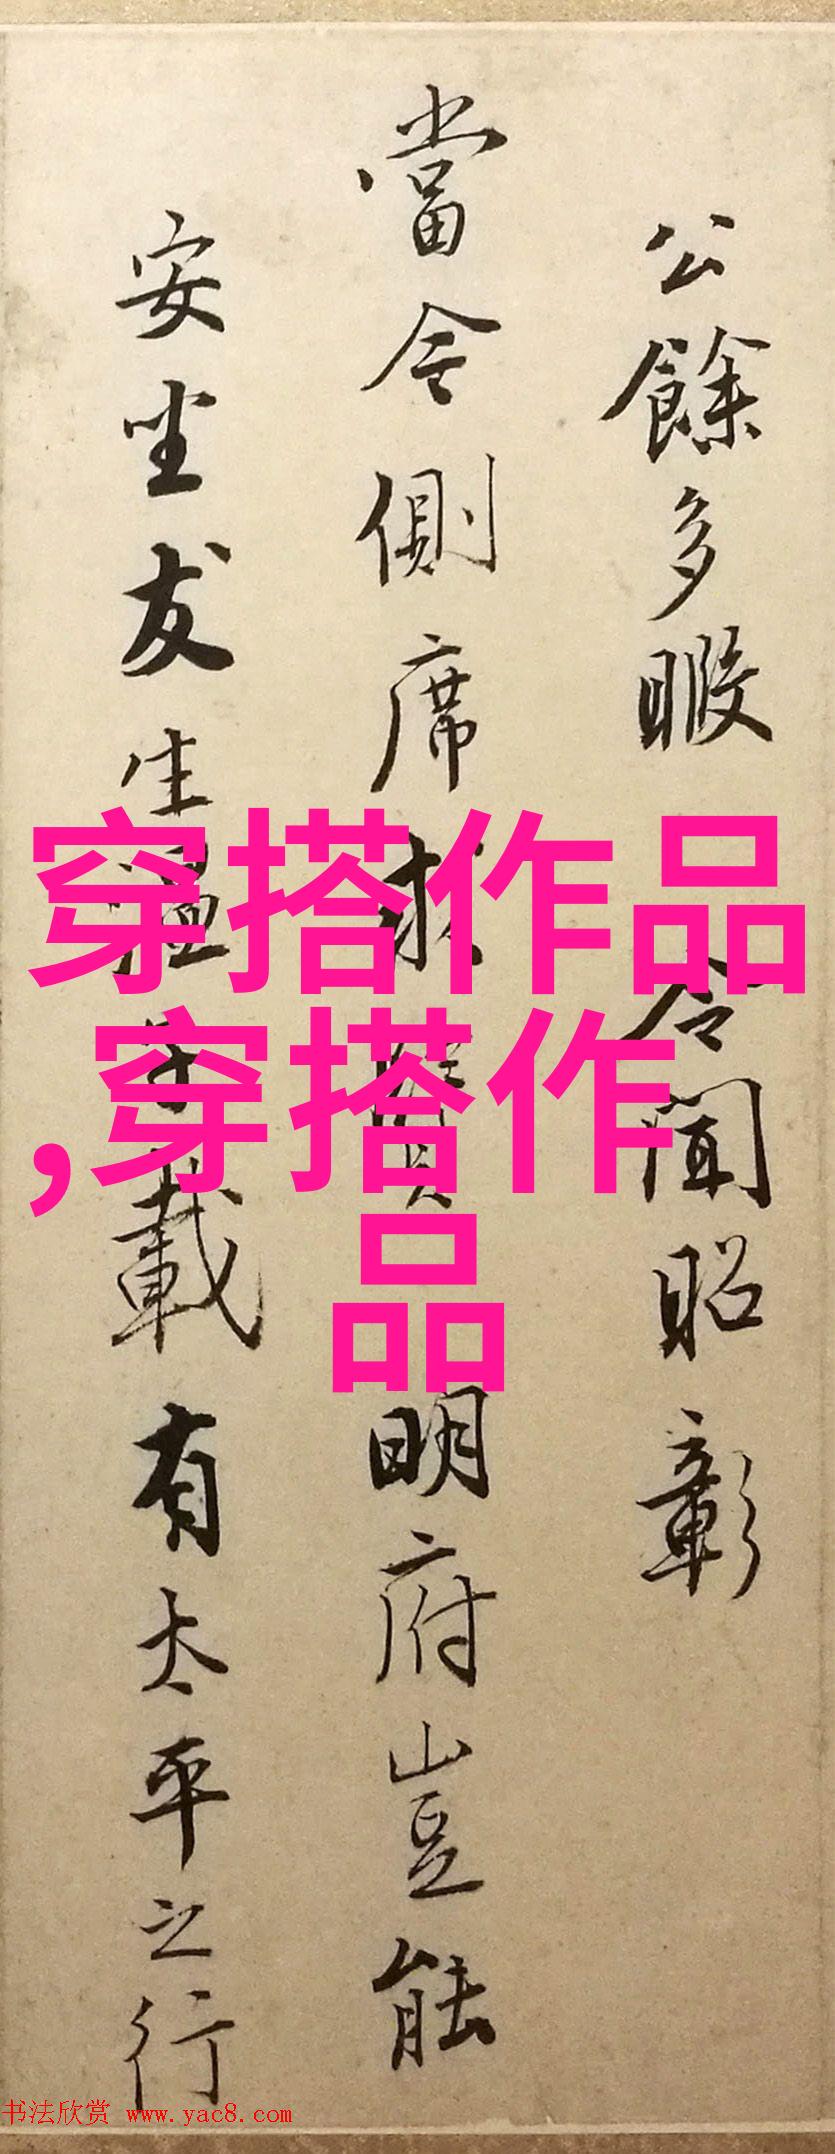 公餘多暇 令聞昭彰
當今側席求賢明府豈能
安坐友生温子載有太平之行
穿搭作品
,穿搭作
品
书法欣赏 www.yac8.com